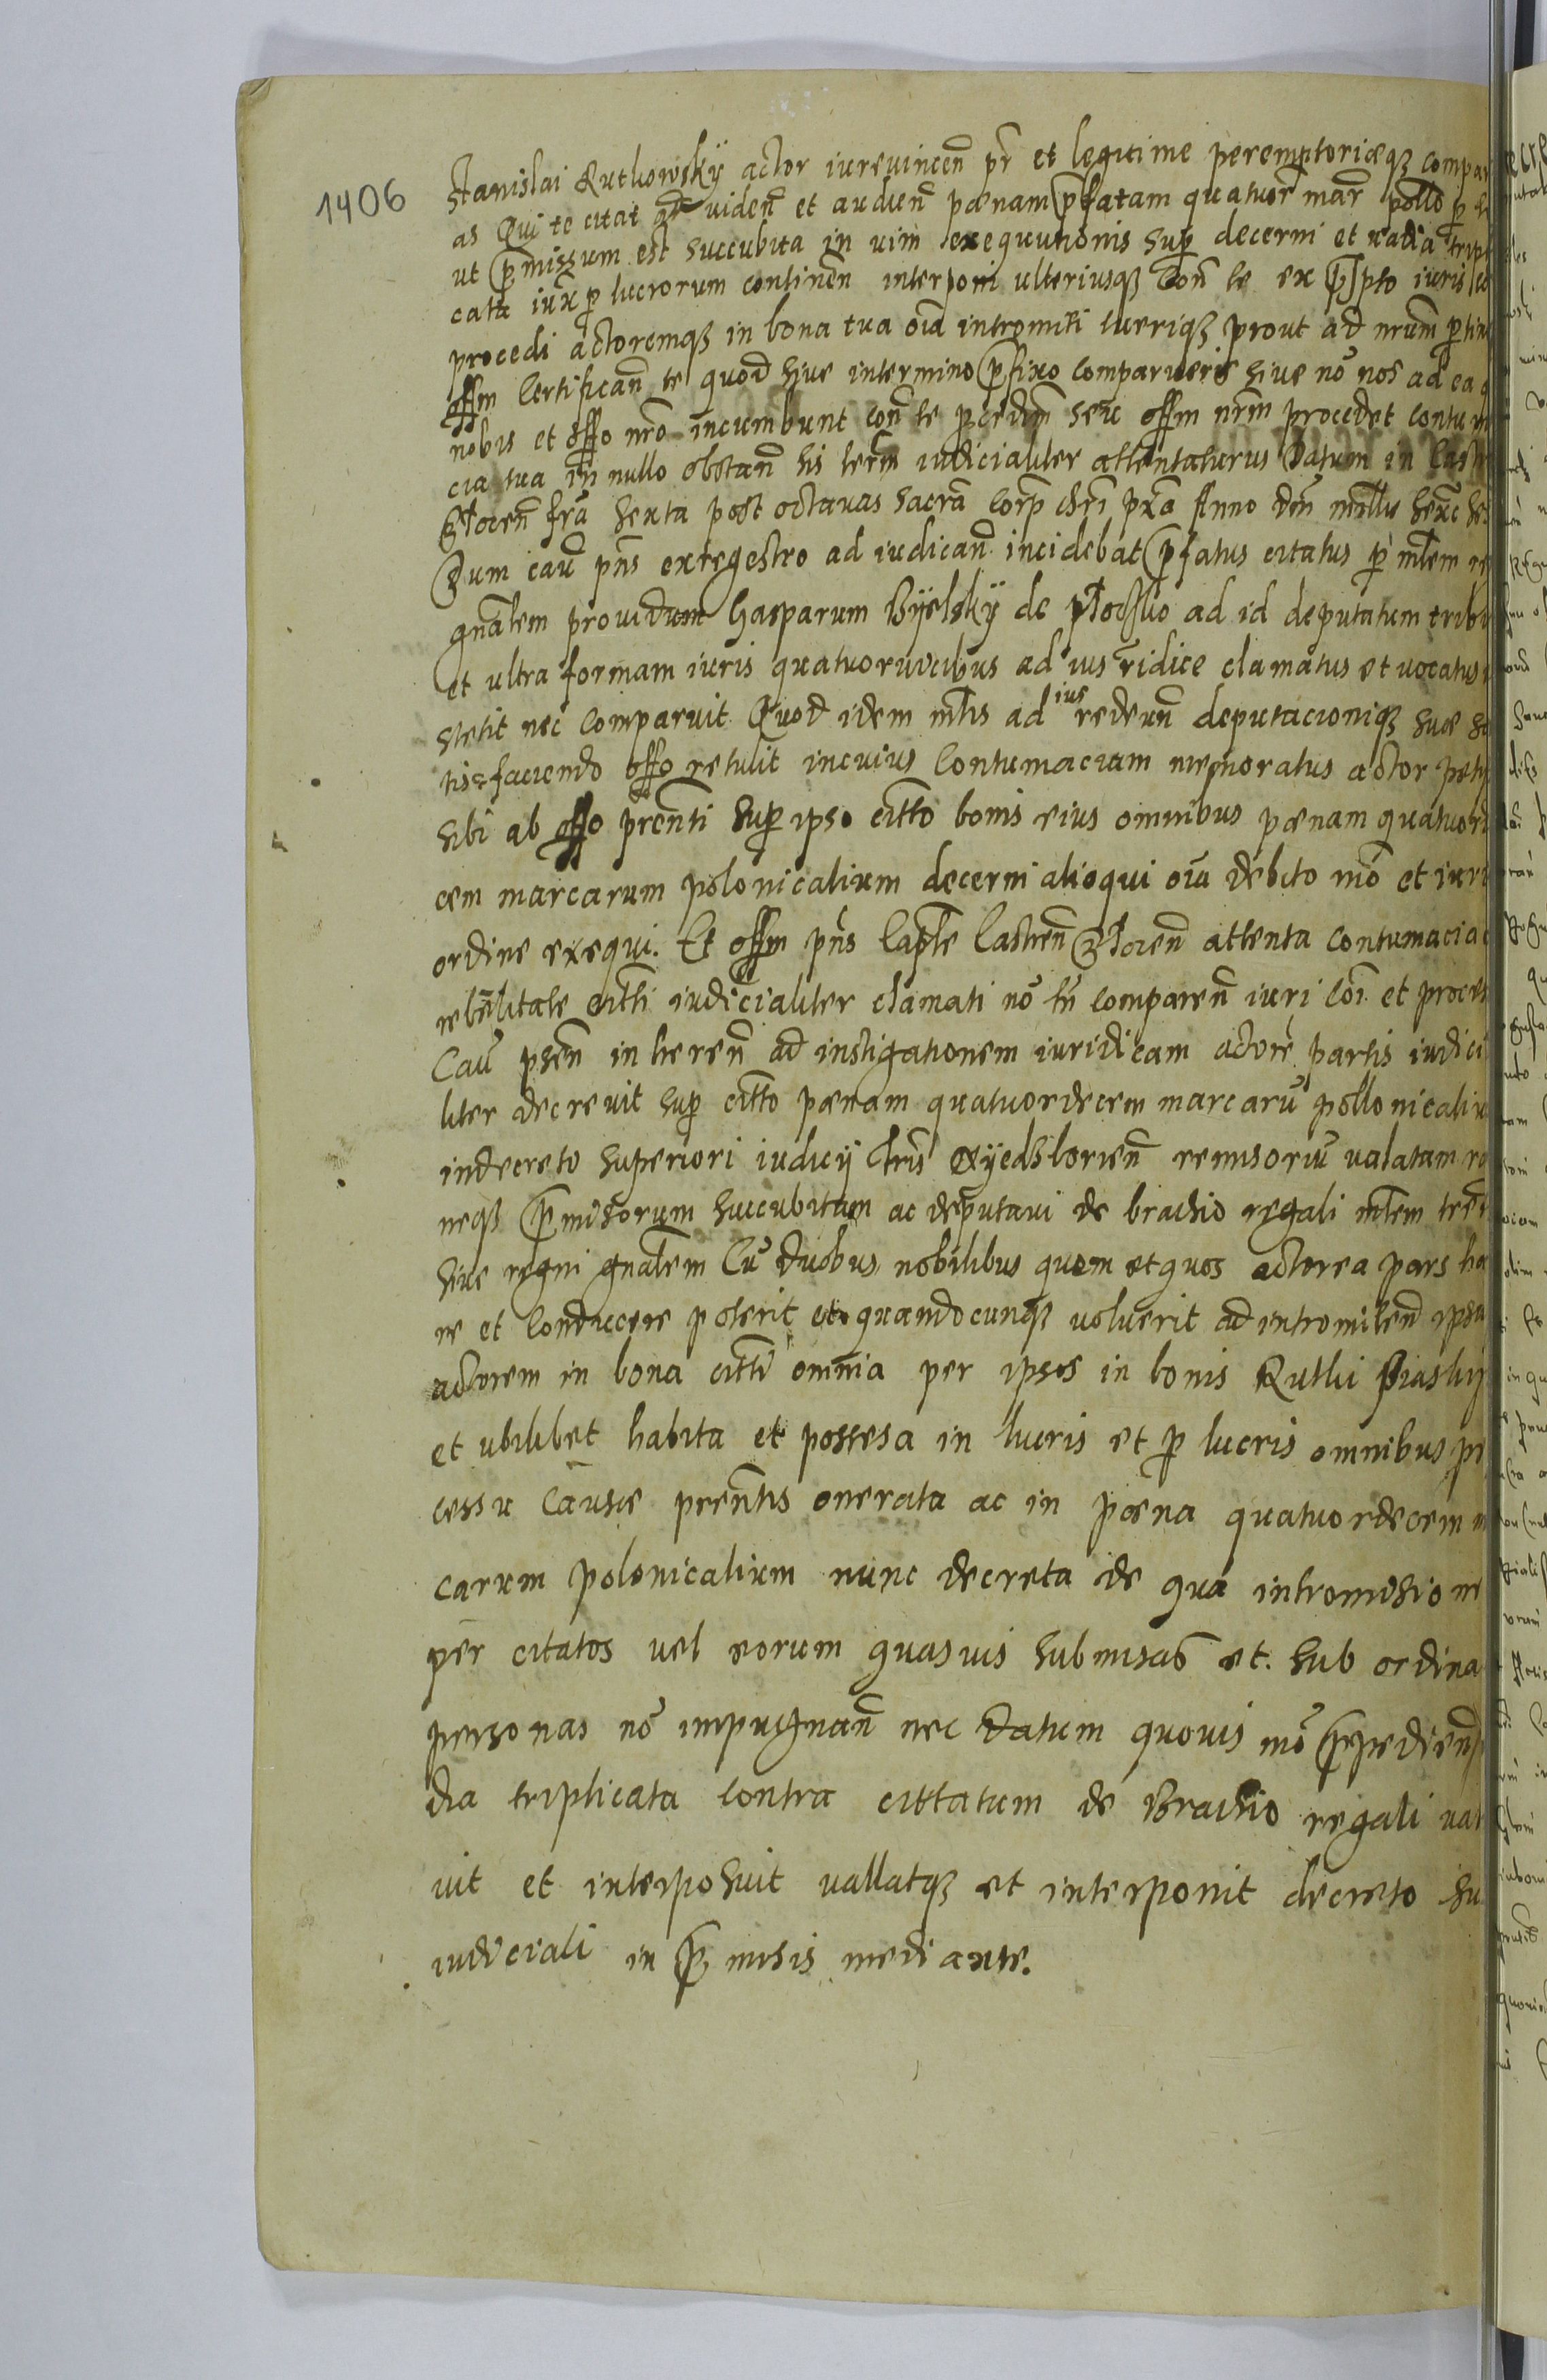 1406
Stanislai Rutkowskÿ actor iurevincen̄ pr̄ et legitime peremptorieq̢ compar
as Qui te citat ad viden̄ et audien̄ pœnam p̄fatam quatuor mar̄ pollo p̱
ut p̄missum est succubita in vim exequutionis sup̱ decerni et vadia trip
cata iux̄ p̱ lucrorum continen̄ interponi ulteriusq̢ con̄ te ex p̄spto iuris
procedi actoremq̢ in bona tua oīa intromitti tueriq̢ prout ad nr̄um p̱tin
offm̄ Certifican̄ te quod sive intermino p̄fixo comparueris sive nō nos ad ea q
nobis et offo nr̄o incumbunt con̄ te p̱cedim̄ seu offm̄ nr̄m procedet contum
cia tua in nullo obstan̄ his term̄ iudicialiter attentaturus Datum in Castr
Plocen̄ fr̄ia sexta post octavas sacra Corp̄ Chr̄i pr̄a Anno Dnī millō sexc
Dum cau pn̄s exregestro ad iudican̄ incidebat p̄fatus citatus p̱ mlēm re
gnālem providum Gasparum Bÿelskÿ de Plocsko ad id deputatum trib
et ultra formam iuris quatuorvicibus ad ius ridice clamatus et vocatus
stetit nec comparuit Quod idem mlīs ad ius redeun̄ deputacioniq̢ suæ sa
tisfaciendo offo retulit incuius Contumaciam memoratus actor pety
sibi ab offo pren̄ti sup̱ ipso citto bonis eius omnibus pœnam quatuord
cem marcarum polonicalium decerni alioqui oīa debito mō et iuri
ordine exequi. Et offm̄ pn̄s Captle Castren̄ Plocen̄ attenta contumacia
rebellitate citti iudicialiter clamati nō tn̄ comparen̄ iuri Coī et proces
Cau p̄sen̄ inheren̄ ad instigationem iuridicam actore partis iudici
liter decrevit sup̱ citto pœnam quatuordecem marcarū pollonicaliu
indecreto superiori iudicÿ tr̄is Rÿedslorien̄ remisoriū valatam
neq̢ p̄misorum succubitam ac deputavi de brachio regali mlēm
sive regni gnālem Cū duobus nobilibus quem et quos actorea pars ha
re et conducere poterit et quandocunq̢ voluerit ad intromiten̄d ipsu
actorem in bona citti omnia per ipsos in bonis Rutki Piaskÿ
et ubilibet habita et possesa in lucris et p̱ lucris omnibus pr
cessu Causæ pren̄tis onerata ac in pœna quatuordecem m
carum polonicalium nunc decreta de qua intromisione
per citatos vel eorum quasvis submisas et sub ordina
personas nō impugnan̄ nec datum quovis mō p̄pedien̄
dia triplicata contra cittatum de Brachio regali val
vit et interposuit vallatq̢ et interponit decreto su
iudiciali in p̄misis mediante.